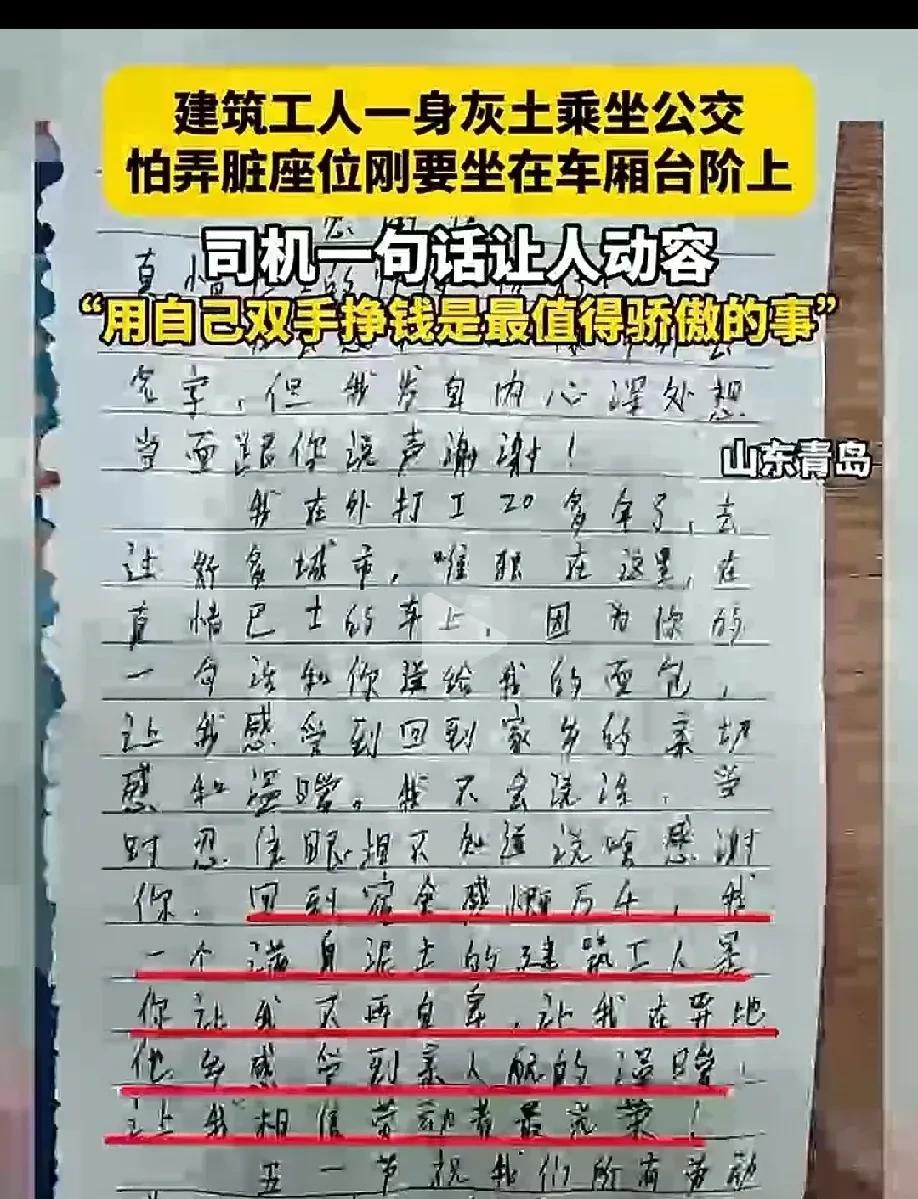 建筑工人一身灰土乘坐公交
怕弄脏座位刚要坐在车厢台阶上
司机一句话让人动容
“用自己双手挣钱是最值得骄傲的事”
名字，但我发自内心深处想
当面跟你说声谢谢！
山东青岛
我在外打工20多年了，去
过好多城市，唯独在这里，在
真情巴士的车上，因为你的
一句话和你递给我的面包，
让我感受到回到家乡的亲切
感和温暖。我不会说话，当
时忍住眼泪不知道说啥感谢
你，回到宿舍感慨万千，我
一个满身泥土的建筑工人是
你让我不再自卑，让我在异地
他乡感受到亲人般的温暖！
让我相信劳动者最光荣！
五一节祝我们所有劳动